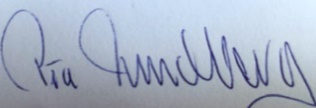 Pia Lundberg